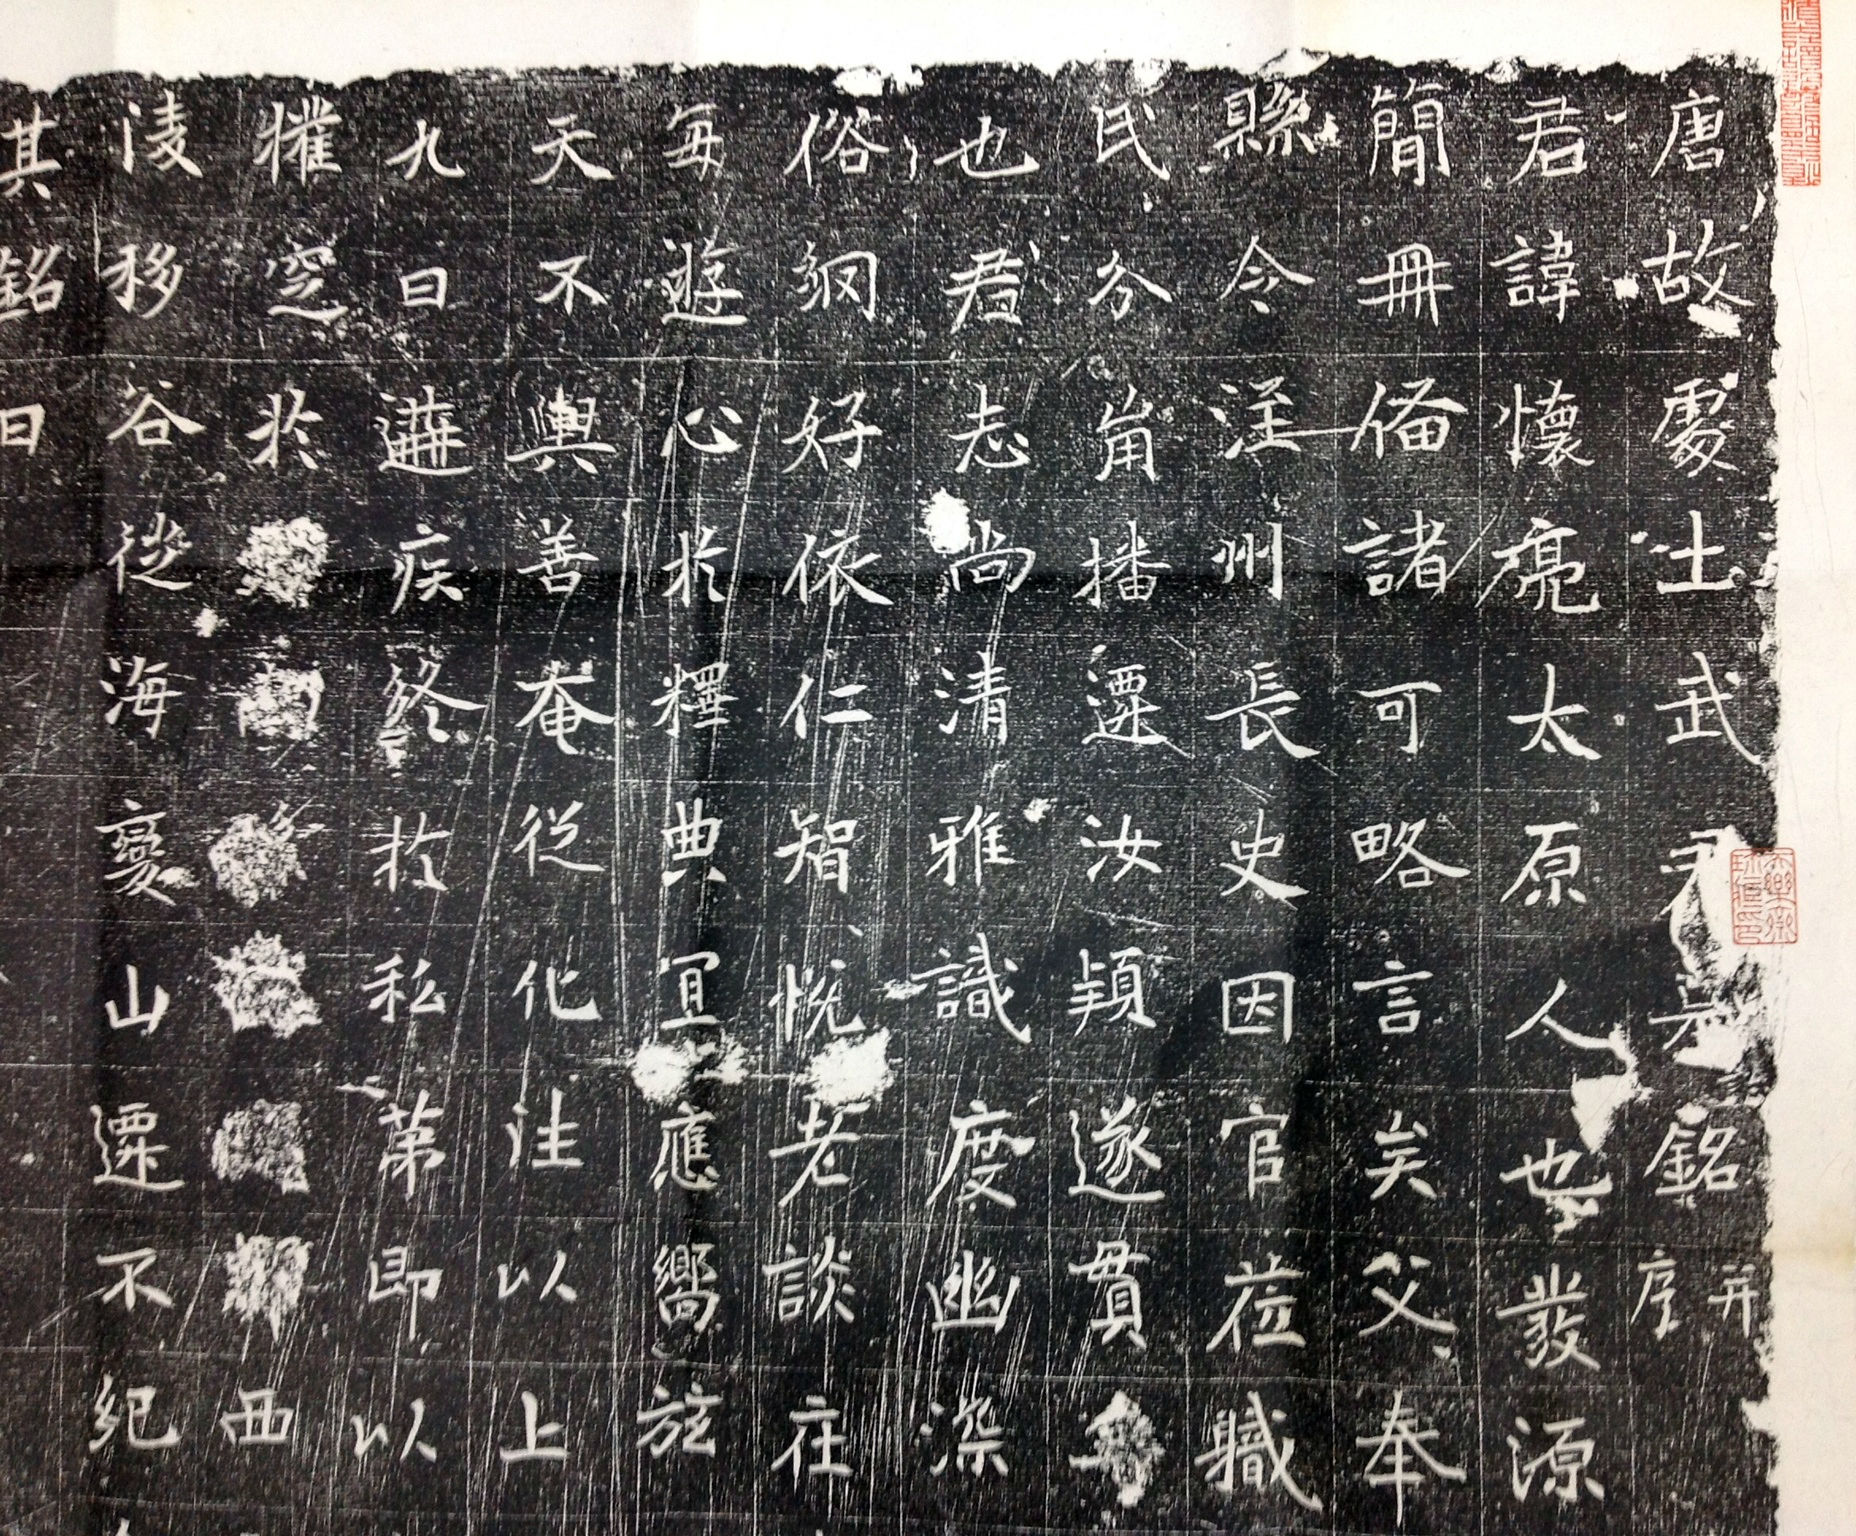 唐故處士武君誌銘并序
君諱懷亮太原人也發源
簡冊俻諸可略言矣父奉
縣令淫州長史因官莅職
氏分崗播遷汝潁遂貫
也君志尚清雅識度幽深
俗網好依仁智悅老談在
每遊心於釋典宜應嚮旋
天不輿善奄從化往以上
九日遘疾終於私第即以
權窆於西
陵移谷從海變山遷不紀
其銘曰